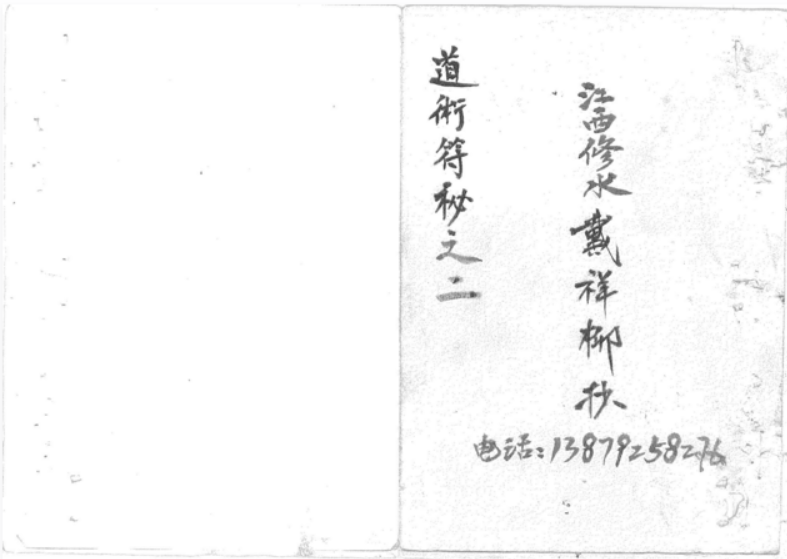 江西修水戴祥柳抄
道術符秘之二
电话:13879258276